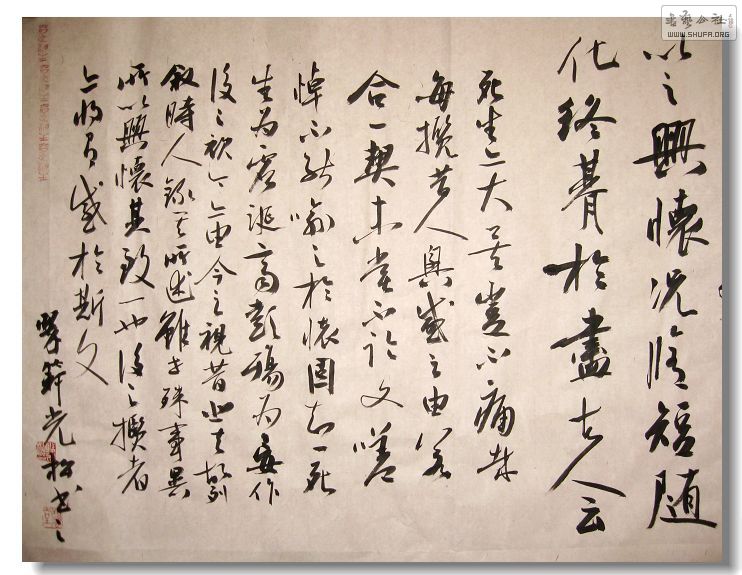 以之興懷况脩短随
化终朞於盡古人云
死生亦大矣豈不痛哉
每攬昔人興感之由若
合一契未嘗不臨文嗟
悼不能喻之於懷固知一死
生為虚诞齊彭殤為妄作
後之視今亦由今之視昔悲夫故列
叙時人錄其所述雖世殊事異
所以興懷其致一也後之攬者
亦將有感於斯文
光松书
书艺公社
WWW.SHUFA.ORG